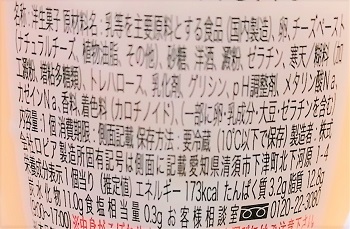 名称：洋生菓子 原材料名：乳等を主要原料とする食品（国内製造）、卵、チーズペースト
（ナチュラルチーズ、植物油脂、その他）、砂糖、洋酒、澱粉、ゼラチン、寒天／糊料（加
工澱粉、増粘多糖類）、トレハロース、乳化剤、グリシン、pH調整剤、メタリン酸Na、
カゼインNa、香料、着色料（カロチノイド）、（一部に卵・乳成分・大豆・ゼラチンを含む）
内容量：1個 消費期限：側面記載 保存方法：要冷蔵（10℃以下で保存）製造者：株式
会社ロピア 製造所固有記号は側面に記載 愛知県清須市下津町北下河原1-4
栄養成分表示 1個当り（推定値）エネルギー 173kcal たんぱく質 3.2g 脂質 12.8g
炭水化物 11.0g 食塩相当量 0.3g お客様相談室 0120-22-3087
〜17:00）